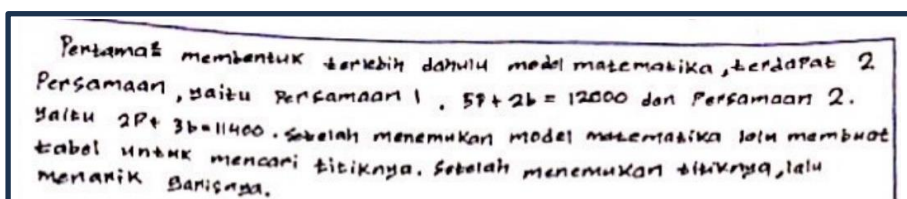 Pertama² membentuk terlebih dahulu model matematika, terdapat 2
Persamaan, yaitu Persamaan 1. 5P + 2b = 12000 dan Persamaan 2.
yaitu 2P + 3b = 11400. Setelah menemukan model matematika lalu membuat
tabel untuk mencari titiknya. Setelah menemukan titiknya, lalu
menarik Garisnya.